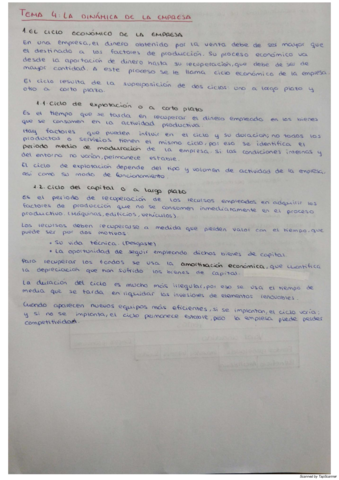 TEMA 4: LA DINÁMICA DE LA EMPRESA
1. EL CICLO ECONÓMICO DE LA EMPRESA
En una empresa, el dinero obtenido por la venta debe de ser mayor que
el destinado a los factores de producción. Su proceso económico va
desde la aportación de dinero hasta su recuperación, que debe de ser de
mayor cantidad. A este proceso se le llama ciclo económico de la empresa.
El ciclo resulta de la superposición de dos ciclos: uno a largo plazo y
otro a corto plazo.
1.1 Ciclo de explotación o a corto plazo
Es el tiempo que se tarda en recuperar el dinero empleado en los bienes
que se consumen en la actividad productiva.
Hay factores que pueden influir en el ciclo y su duración, no todos los
productos o servicios tienen el mismo ciclo, por eso se identifica el
periodo medio de maduración de la empresa. Si las condiciones internas y
del entorno no varían, permanece estable.
El ciclo de explotación depende del tipo y sector de actividad de la empresa,
así como su modo de funcionamiento.
1.2. Ciclo del capital o a largo plazo
Es el periodo de recuperación de los recursos empleados en adquirir los
factores de producción que no se consumen inmediatamente en el proceso
productivo. (máquinas, edificios, vehículos).
Los recursos deben recuperarlo a medida que pierden valor con el tiempo, que
puede ser por dos motivos:
• Su vida técnica. (desgaste)
• La oportunidad de seguir empleando dichos bienes de capital.
Para recuperar los fondos se usa la amortización económica, que cuantifica
la depreciación que han sufrido los bienes de capital.
La duración del ciclo es mucho más irregular, por eso se usa el tiempo de
media que se tarda en liquidar las inversiones de elementos
Cuando aparecen nuevos equipos más eficientes, si se implantan, el ciclo varía
y si no se implanta, el ciclo permanece estable, pero la empresa puede perder
competitividad.
Scanned by TapScanner